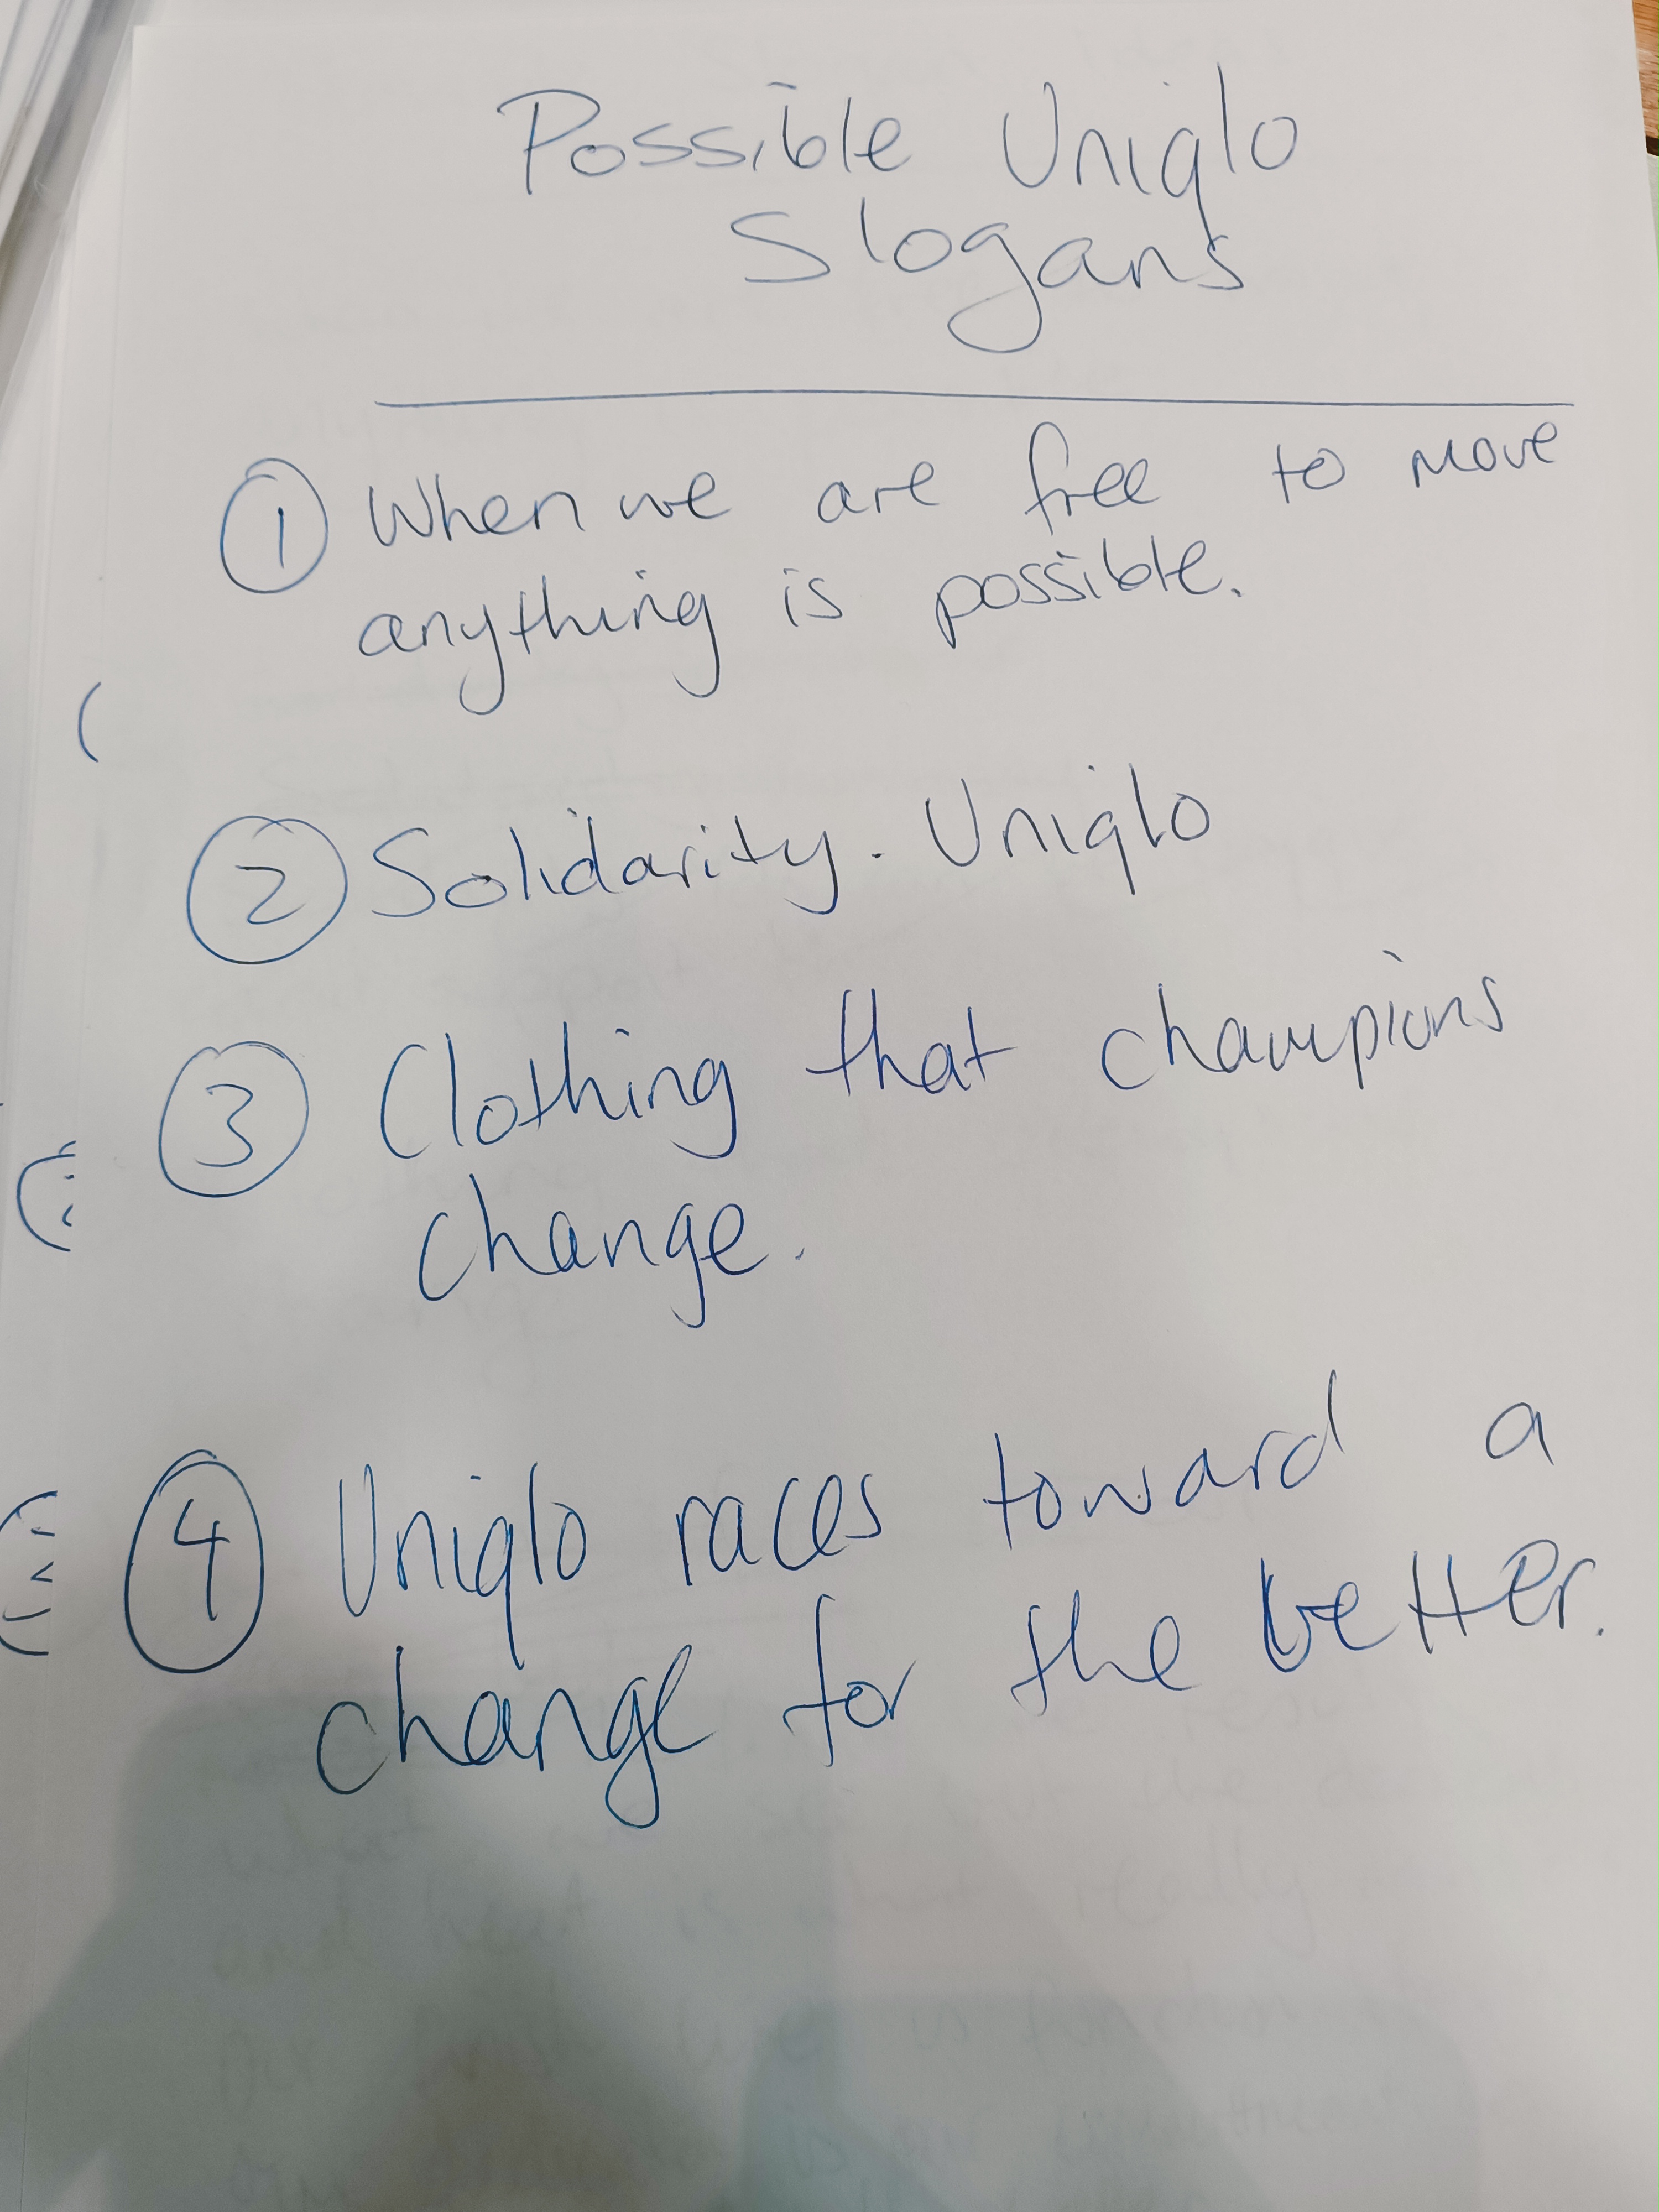 Possible Uniqlo
Slogans
1 When we are free to move
anything is possible.
2 Solidarity. Uniqlo
3 Clothing that champions
change.
4 Uniqlo races toward a
change for the better.